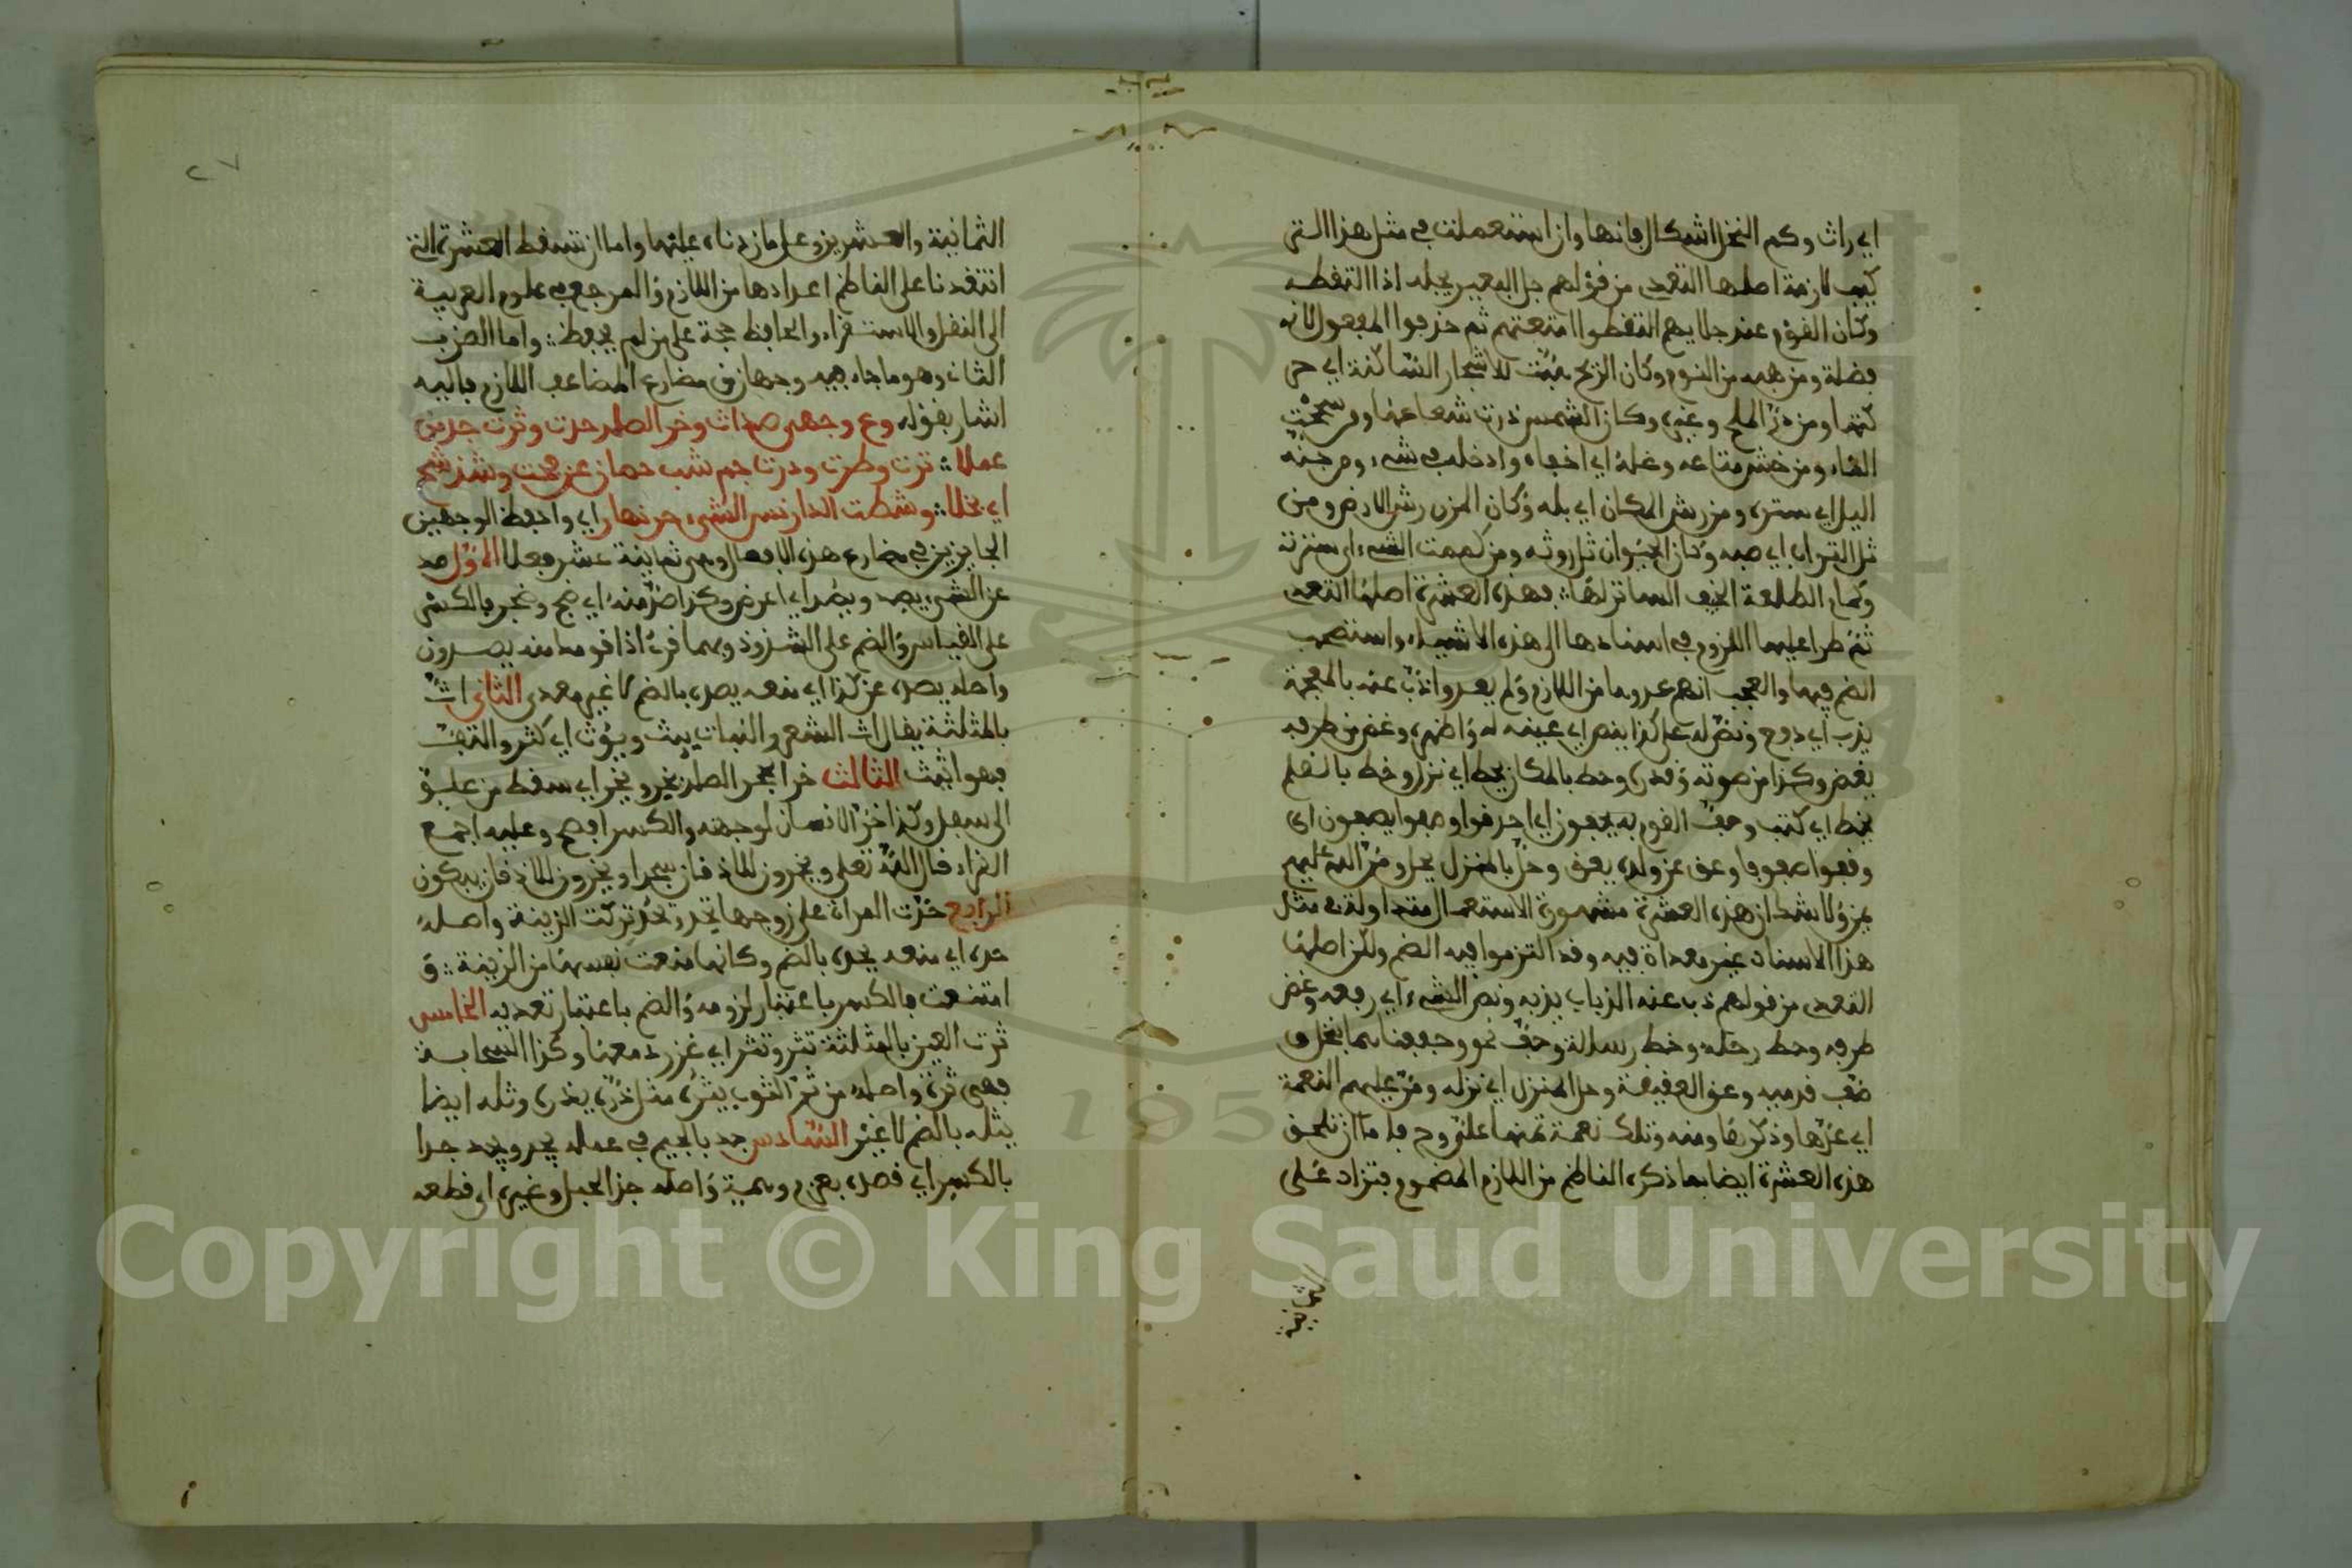 اي راث وكم النخل اشكال فانها وان استعملت في مثل هذا التر
كيب لازمة اصلها التعدي من قولهم جل البعير يجله اذا التقطه
وكان القوم عند جلايهم التقطوا امتعتهم ثم حذفوا المفعول لانه
فضلة ومن هبه من النوم وكان الريح هبت للاشجار الساكنة اي حر
كتها ومن ذر الملح وغيره وكان الشمس ذرت شعاعها ومن سحت
الماء ومن خش متاعه وغله اي اخفاه وادخله في شيء ومن جنه
اليل اي ستره ومن رش المكان اي بله وكان المزن رش الارض ومن
ثل التراب اي صبه وكان الحيوان ثل روثه ومن كممت الشيء اي سترته
وكمام الطلعة الخيف الساتر لها فهذه العشرة اصلها التعدي
ثم طرا عليها اللزوم في اسنادها الى هذه الاشياء واستصحب
الضم فيها والعجب انهم عدوها من اللازم ولم يعدوا ذب عنه بالمعجمة
يذب اي دفع ونص له على كذا ينص اي عينه له واظهره وغض من طرفه
يغض وكذا من صوته وقدره وحط بالمكان يحط اي نزل وخط بالقلم
يخط اي كتب وحف القوم به يحفون اي احدقوا وصفوا يصفون اي
وقفوا صفوفا وعق عن ولده يعق وحل بالمنزل يحل ومن الله عليهم
يمن ولا شك ان هذه العشرة مشهورة الاستعمال متداولة في مثل
هذا الاسناد غير معداة فيه وقد التزموا فيه الضم ولكن اصلها
التعدي من قولهم ذب عنه الذباب يذبه ونص الشيء اي رفعه وغض
طرفه وحط رحله وخط رسالة وحف نحو وحففناهما بنخل و
صف قدميه وعق العقيقة وحل المنزل اي نزله ومن عليهم النعمة
اي عدها وذكر بها ومنه وتلك نعمة تمنها علي وح فاما ان تلحق
هذه العشرة ايضا بما ذكره الناظم من اللازم المضموم فتزاد على
الثمانية
الثمانية والعشرين وعلى ما زدناه عليها واما ان تسقط العشرة التي
انتقدنا على الناظم اعدادها من اللازم والمرجع في علوم العربية
الى النقل والاستقراء والحافظ حجة على من لم يحفظ واما الضرب
الثاني وهو ما جاء فيه وجهان من مضارع المضاعف اللازم فاليه
اشار بقوله وع وجهي صد اث وخر الصلد حدت وثرت جد من
عملا ترت وطرت ودرت جم شب حصان عن فحت وشذ شح
اي بخلا وشطت الدار نس الشيء حر نهار اي واحفظ الوجهين
الجايزين في مضارع هذه الافعال وهي ثمانية عشر فعلا الاول صد
عن الشيء يصد ويصد اي اعرض وكذا صد منه اي ضج وضجر فالكسر
على القياس والضم على الشذوذ وبهما قرئ اذا قومك منه يصدون
واما صده يصده عن كذا اي منعه يصده بالضم لا غير معدى الثاني اث
بالمثلثة يقال اث الشعر والنبات يئث ويؤث اي كثر والتف
فهو اثيث الثالث خر الحجر الصلد يخر ويخر اي سقط من علو
الى سفل وكذا خر الانسان لوجهه والكسر افصح وعليه اجمع
القراء قال الله تعلى ويخرون للاذقان سجدا ويخرون للاذقان يبكون
الرابع حدت المراة على زوجها تحد وتحد تركت الزينة واصله
حده اي منعه يحده بالضم وكانها منعت نفسها من الزينة و
امتنعت فالكسر باعتبار لزومه والضم باعتبار تعديه الخامس
ثرت العين بالمثلثة تثر وتثر اي غزر دمعها وكذا السحابة
فهي ثرة واصله من ثر الثوب يثره مثل ذره يذره وثله ايضا
يثله بالضم لا غير السادس جد بالجيم في عمله يجد ويجد جدا
بالكسر اي قصده بعزم وهمة واصله جذ الحبل وغيره اي قطعه